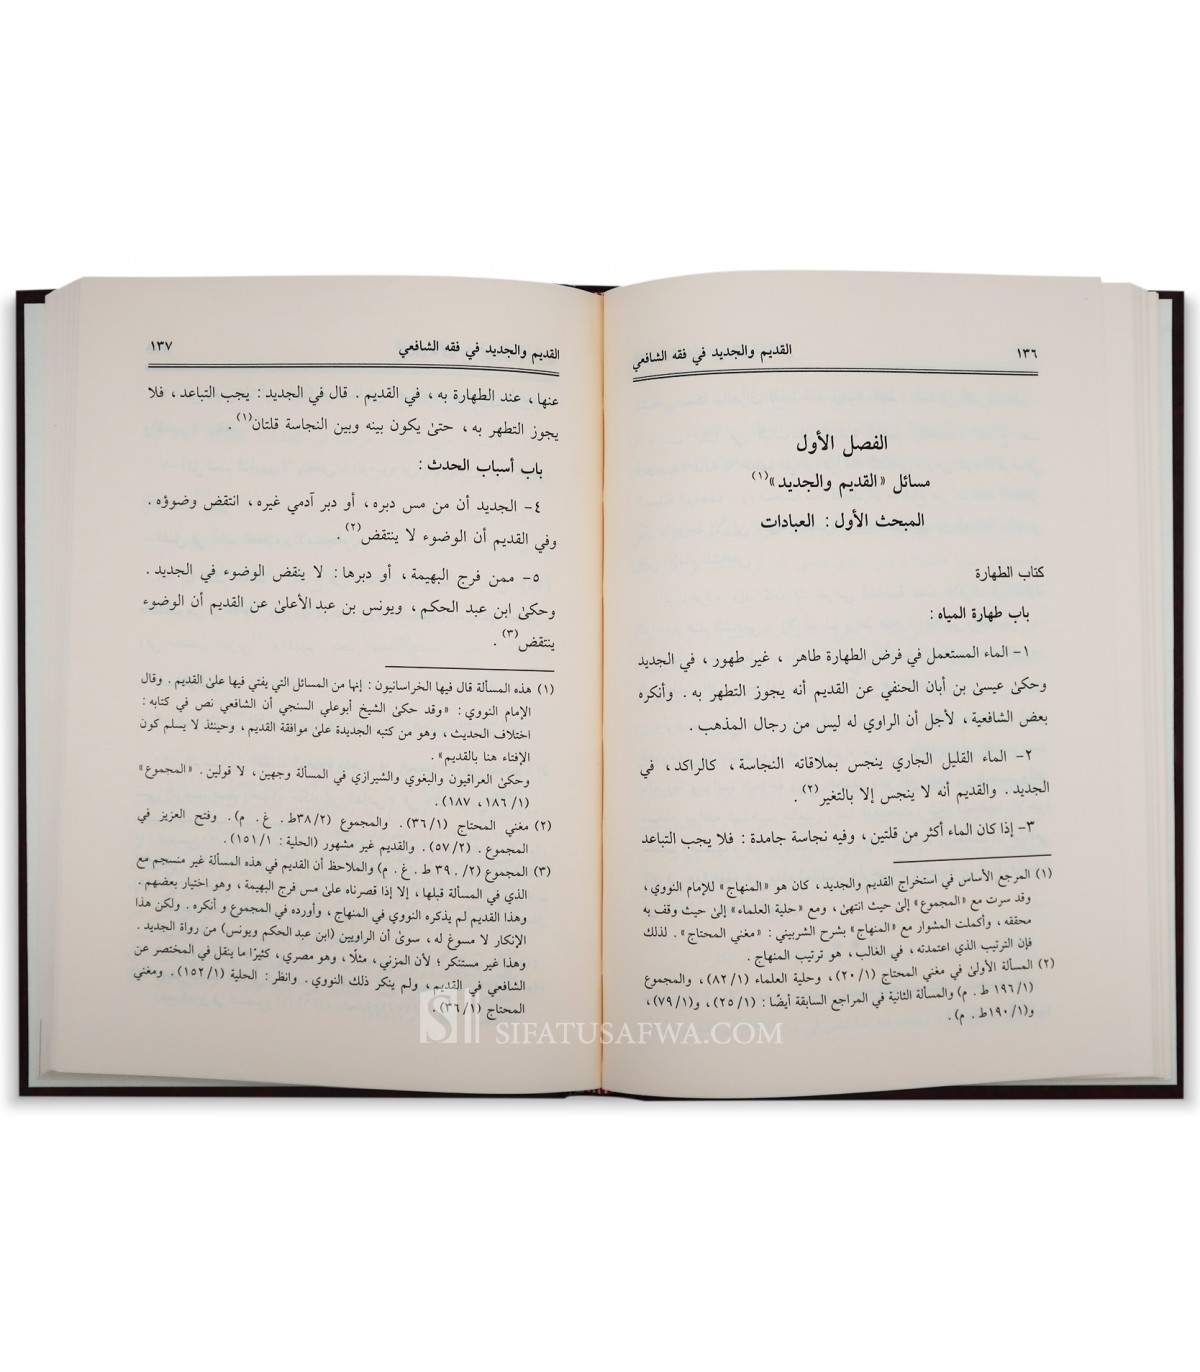 ١٣٦ القديم والجديد في فقه الشافعي
الفصل الأول
مسائل «القديم والجديد»(١)
المبحث الأول : العبادات
كتاب الطهارة
باب طهارة المياه :
١- الماء المستعمل في فرض الطهارة طاهر ، غير طهور ، في الجديد
وحكىٰ عيسىٰ بن أبان الحنفي عن القديم أنه يجوز التطهر به . وأنكره
بعض الشافعية ، لأجل أن الراوي له ليس من رجال المذهب .
٢- الماء القليل الجاري ينجس بملاقاته النجاسة ، كالراكد ، في
الجديد . والقديم أنه لا ينجس إلا بالتغير(٢) .
٣- إذا كان الماء أكثر من قلتين ، وفيه نجاسة جامدة : فلا يجب التباعد
(١) المرجع الأساس في استخراج القديم والجديد ، كان هو «المنهاج» للإمام النووي ،
وقد سرت مع «المجموع» إلىٰ حيث انتهىٰ ، ومع «حلية العلماء» إلىٰ حيث وقف به
محققه ، وأكملت المشوار مع «المنهاج» بشرح الشربيني : «مغني المحتاج» . لذلك
فإن الترتيب الذي اعتمدته ، في الغالب ، هو ترتيب المنهاج .
(٢) المسألة الأولىٰ في مغني المحتاج (٢٠/١) ، وحلية العلماء (٨٢/١) ، والمجموع
(١٩٦/١ ط . م) والمسألة الثانية في المراجع السابقة أيضًا : (٢٥/١) ، و(٧٩/١) ،
و(١٩٠/١ط . م) .
القديم والجديد في فقه الشافعي ١٣٧
عنها ، عند الطهارة به ، في القديم . قال في الجديد : يجب التباعد ، فلا
يجوز التطهر به ، حتىٰ يكون بينه وبين النجاسة قلتان(١) .
باب أسباب الحدث :
٤- الجديد أن من مس دبره ، أو دبر آدمي غيره ، انتقض وضوؤه .
وفي القديم أن الوضوء لا ينتقض(٢) .
٥- ممن فرج البهيمة ، أو دبرها : لا ينقض الوضوء في الجديد .
وحكىٰ ابن عبد الحكم ، ويونس بن عبد الأعلىٰ عن القديم أن الوضوء
ينتقض(٣) .
(١) هذه المسألة قال فيها الخراسانيون : إنها من المسائل التي يفتي فيها علىٰ القديم . وقال
الإمام النووي : «وقد حكىٰ الشيخ أبوعلي السنجي أن الشافعي نص في كتابه :
اختلاف الحديث ، وهو من كتبه الجديدة علىٰ موافقة القديم ، وحينئذ لا يسلم كون
الإفتاء هنا بالقديم» .
وحكىٰ العراقيون والبغوي والشيرازي في المسألة وجهين ، لا قولين . «المجموع»
(١٨٦/١ ، ١٨٧) .
(٢) مغني المحتاج (٣٦/١) . والمجموع (٣٨/٢ط . غ . م) . وفتح العزيز في
المجموع . (٥٧/٢) . والقديم غير مشهور (الحلية : ١٥١/١) .
(٣) المجموع (٢/ ٣٩ . ط . غ . م) والملاحظ أن القديم في هذه المسألة غير منسجم مع
الذي في المسألة قبلها ، إلا إذا قصرناه علىٰ مس فرج البهيمة ، وهو اختيار بعضهم .
وهذا القديم لم يذكره النووي في المنهاج ، وأورده في المجموع و أنكره . ولكن هذا
الإنكار لا مسوغ له ، سوىٰ أن الراويين (ابن عبد الحكم ويونس) من رواة الجديد .
وهذا غير مستنكر ؛ لأن المزني ، مثلًا ، وهو مصري ، كثيرًا ما ينقل في المختصر عن
الشافعي في القديم ، ولم ينكر ذلك النووي . وانظر : الحلية (١٥٢/١) . ومغني
المحتاج (٣٦/١) .
SIFATUSAFWA.COM